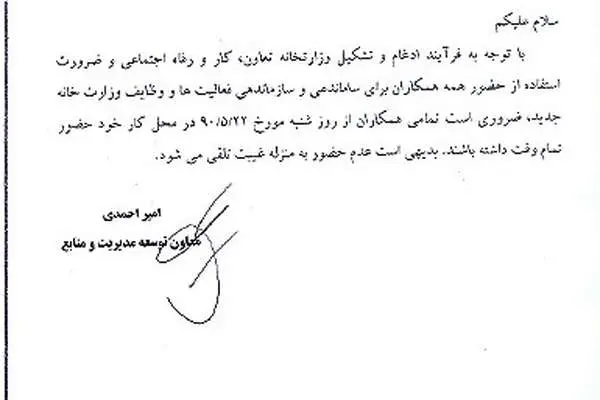 سلام علیکم
با توجه به فرآیند ادغام و تشکیل وزارتخانه تعاون، کار و رفاه اجتماعی و ضرورت
استفاده از حضور همه همکاران برای ساماندهی و سازماندهی فعالیت ها و وظایف وزارت خانه
جدید، ضروری است تمامی همکاران از روز شنبه مورخ ۹۰/۵/۲۲ در محل کار خود حضور
تمام وقت داشته باشند. بدیهی است عدم حضور به منزله غیبت تلقی می شود.
امیر احمدی
معاون توسعه مدیریت و منابع